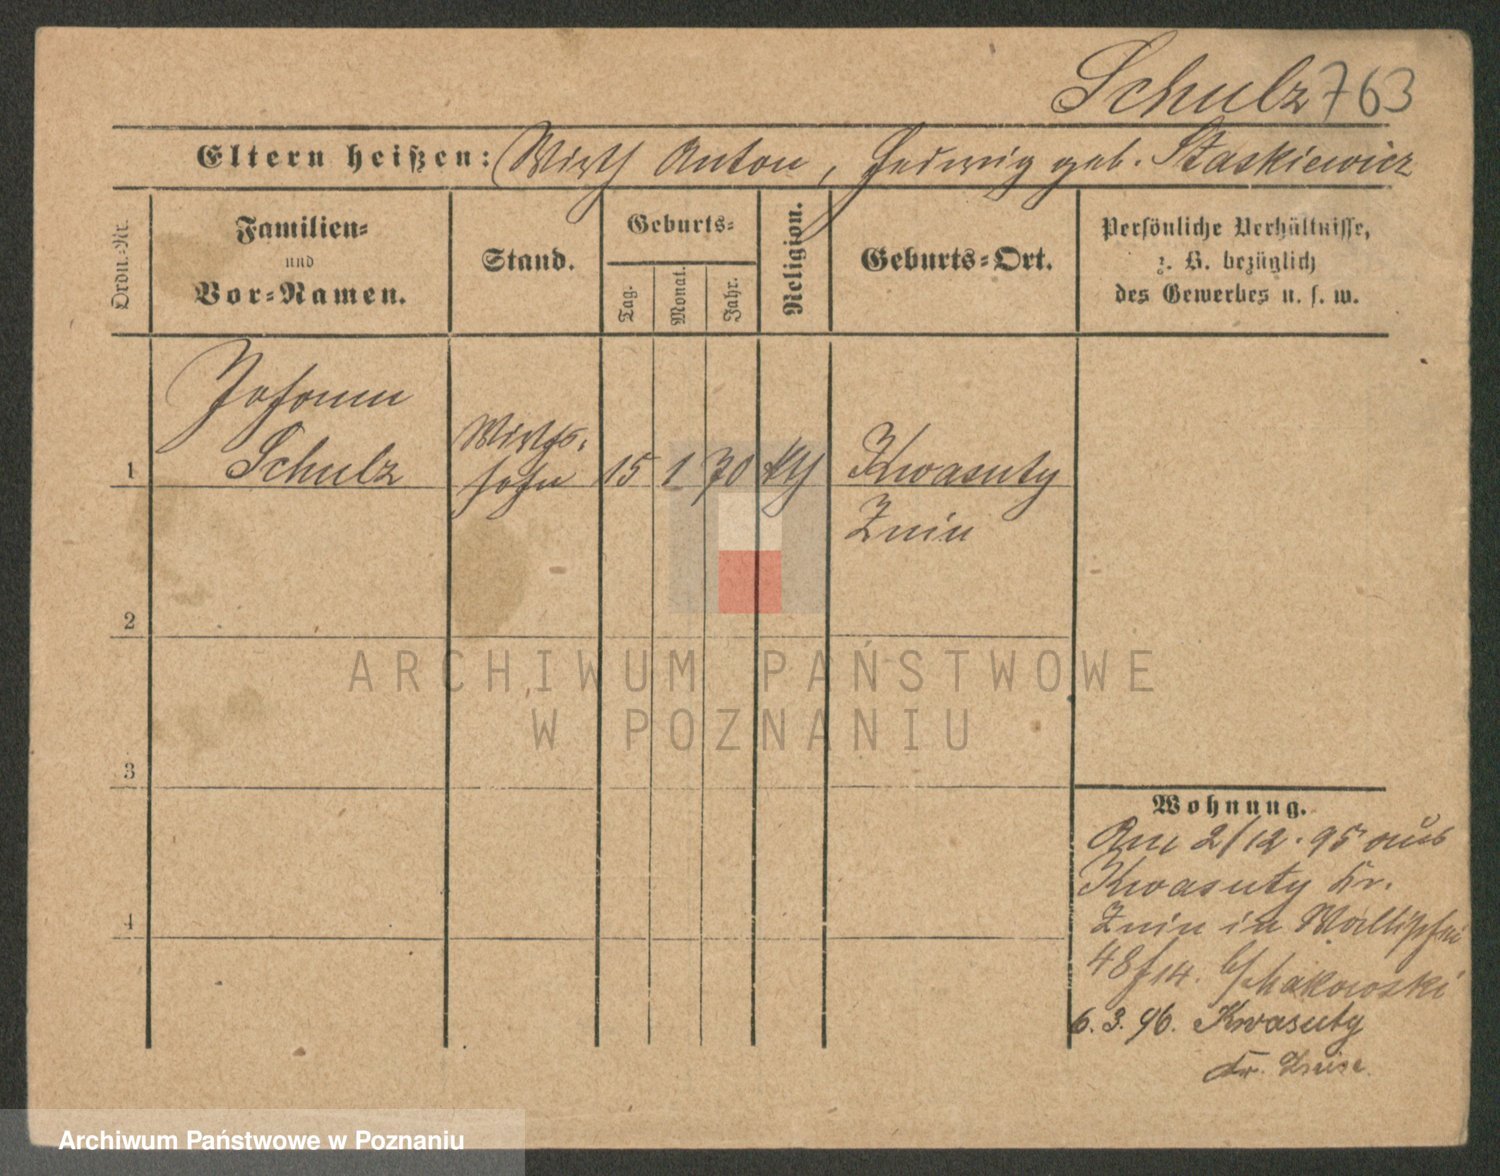 Schulz 763
Eltern heißen: Wirth Anton, Hedwig geb. Staskiewicz
Ordn.-Nr.
Familien-
und
Vor-Namen.
Stand.
Geburts-
Tag.
Monat.
Jahr.
Religion.
Geburts-Ort.
Persönliche Verhältnisse,
z. B. bezüglich
des Gewerbes u. s. w.
Johann
Schulz
Wirths-
sohn
1
15 1 70 kth
Kwasuty
Znin
2
3
4
Wohnung.
Am 2/12. 95 aus
Kwasuty Kr.
Znin in Wallischei
48/14. b/
6. 3. 96. Kwasuty
Kr. Znin
ARCHIWUM PAŃSTWOWE
W POZNANIU
Archiwum Państwowe w Poznaniu